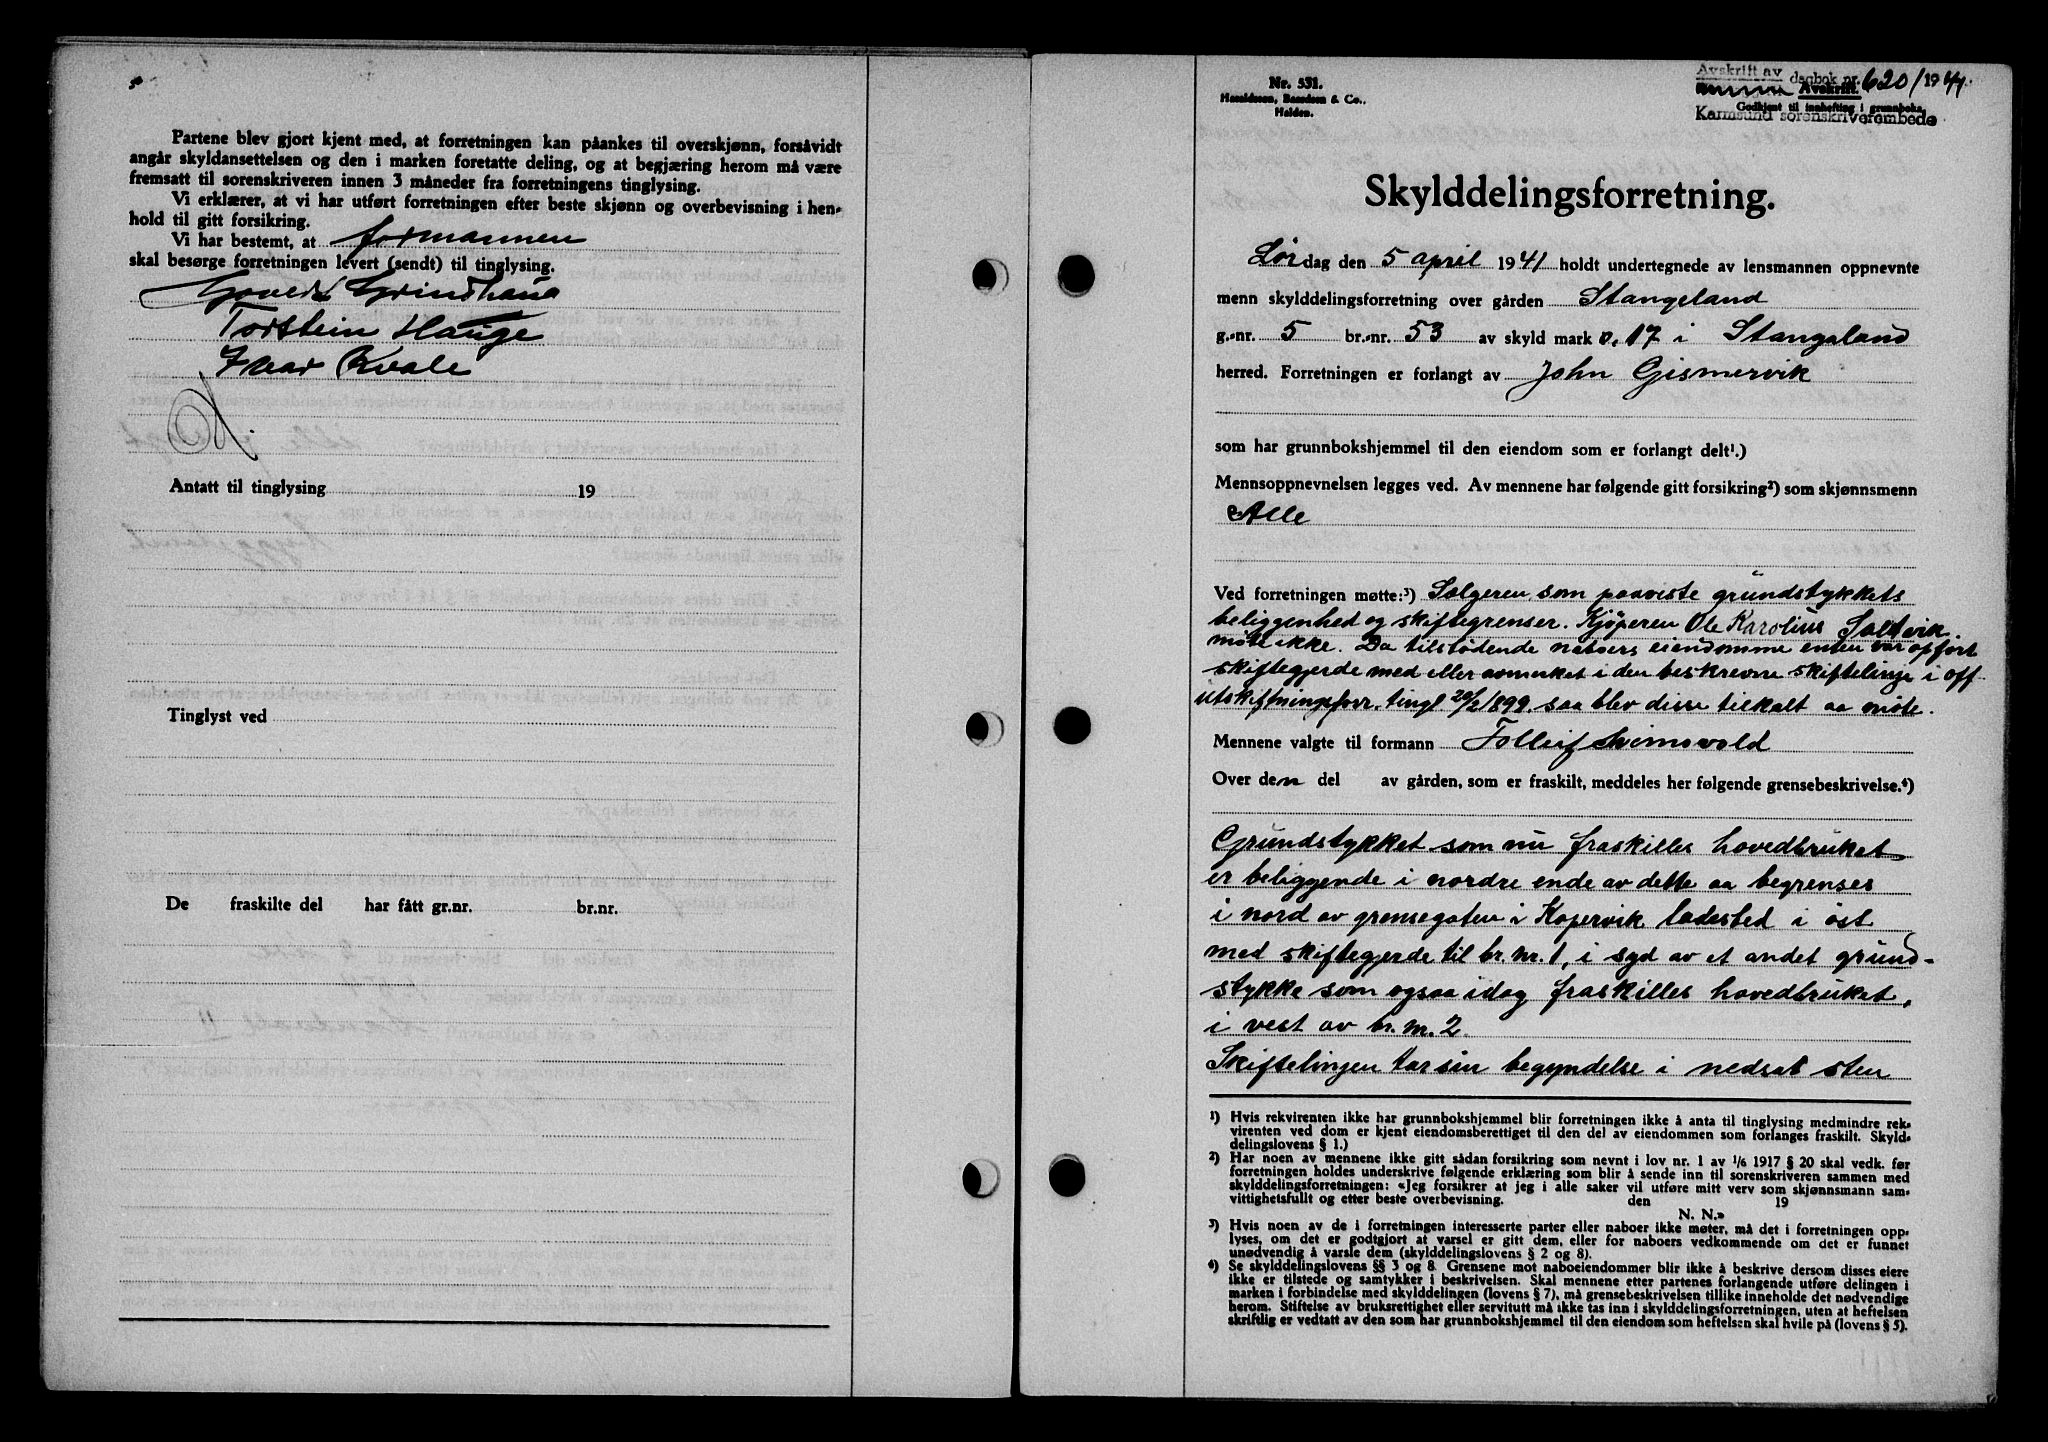 Partene blev gjort kjent med, at forretningen kan påankes til overskjønn, forsåvidt
angår skyldansettelsen og den i marken foretatte deling, og at begjæring herom må være
fremsatt til sorenskriveren innen 3 måneder fra forretningens tinglysing.
Vi erklærer, at vi har utført forretningen efter beste skjønn og overbevisning i hen-
hold til gitt forsikring.
Vi har bestemt, at formannen
skal besørge forretningen levert (sendt) til tinglysing.
Grindhaug
Torstein Hauge
Ivar Kvale
Antatt til tinglysing 19
Tinglyst ved
De fraskilte del har fått gr.nr. br.nr.
Nr. 531.
Haraldssen, Bamdsen & Co.,
Halden.
Avskrift av dagbok nr. 620/1941
Avskrift.
Godkjent til innhefting i grunnboka
Karmsund sorenskriverembede
Skylddelingsforretning.
Lørdag den 5 april 1941 holdt undertegnede av lensmannen oppnevnte
menn skylddelingsforretning over gården Stangeland
g.-nr. 5 br.-nr. 53 av skyld mark 0.17 i Stangaland
herred. Forretningen er forlangt av John Gismervik
som har grunnbokshjemmel til den eiendom som er forlangt delt¹.)
Mennsoppnevnelsen legges ved. Av mennene har følgende gitt forsikring²) som skjønnsmenn
Alle
Ved forretningen møtte:³) Sælgeren som paaviste grundstykkets
beliggenhed og skiftegrenser. Kjøperen Ole Karolius Saltvik
møte ikke. Da tilstødende naboers eiendomme enten var opført
skiftegjerde med eller avmerket i den beskrevne skiftelinje i off.
utskiftningsforr. tingl 20/2 1899. saa blev disse tilkalt aa møte.
Mennene valgte til formann Tolleif
Over den del av gården, som er fraskilt, meddeles her følgende grensebeskrivelse.⁴)
Grundstykket som nu fraskilles hovedbruket
er beliggende i nordre ende av dette aa begrenses
i nord av grensegaten i Kopervik ladested i øst
med skiftegjerde til br. nr. 1, i syd av et andet grund-
stykke som ogsaa idag fraskilles hovedbruket,
i vest av br. nr. 2.
Skiftelinjen tar sin begyndelse i nedsat sten
¹) Hvis rekvirenten ikke har grunnbokshjemmel blir forretningen ikke å anta til tinglysing medmindre rek-
virenten ved dom er kjent eiendomsberettiget til den del av eiendommen som forlanges fraskilt. Skyld-
delingslovens § 1.)
²) Har noen av mennene ikke gitt sådan forsikring som nevnt i lov nr. 1 av ¹/₆ 1917 § 20 skal vedk. før
forretningen holdes underskrive følgende erklæring som blir å sende inn til sorenskriveren sammen med
skylddelingsforretningen: «Jeg forsikrer at jeg i alle saker vil utføre mitt verv som skjønnsmann sam-
vittighetsfullt og etter beste overbevisning. den 19
N. N.»
³) Hvis noen av de i forretningen interesserte parter eller naboer ikke møter, må det i forretningen opp-
lyses, om det er godtgjort at varsel er gitt dem, eller for naboers vedkommende om det er funnet
unødvendig å varsle dem (skylddelingslovens § 2 og 8).
⁴) Se skylddelingslovens §§ 3 og 8. Grensene mot naboeiendommer blir ikke å beskrive dersom disses eiere
ikke er tilstede og samtykker i beskrivelsen. Skal mennene etter partenes forlangende utføre delingen i
marken i forbindelse med skylddelingen (lovens § 7), må grensebeskrivelsen tillike inneholde det nødvendige
herom. Stiftelse av bruksrettighet eller servitutt må ikke tas inn i skylddelingsforretningen, uten at heftelsen
skriftlig er vedtatt av den som har grunnbokshjemmel til den eiendom som heftelsen skal hvile på (lovens § 5).